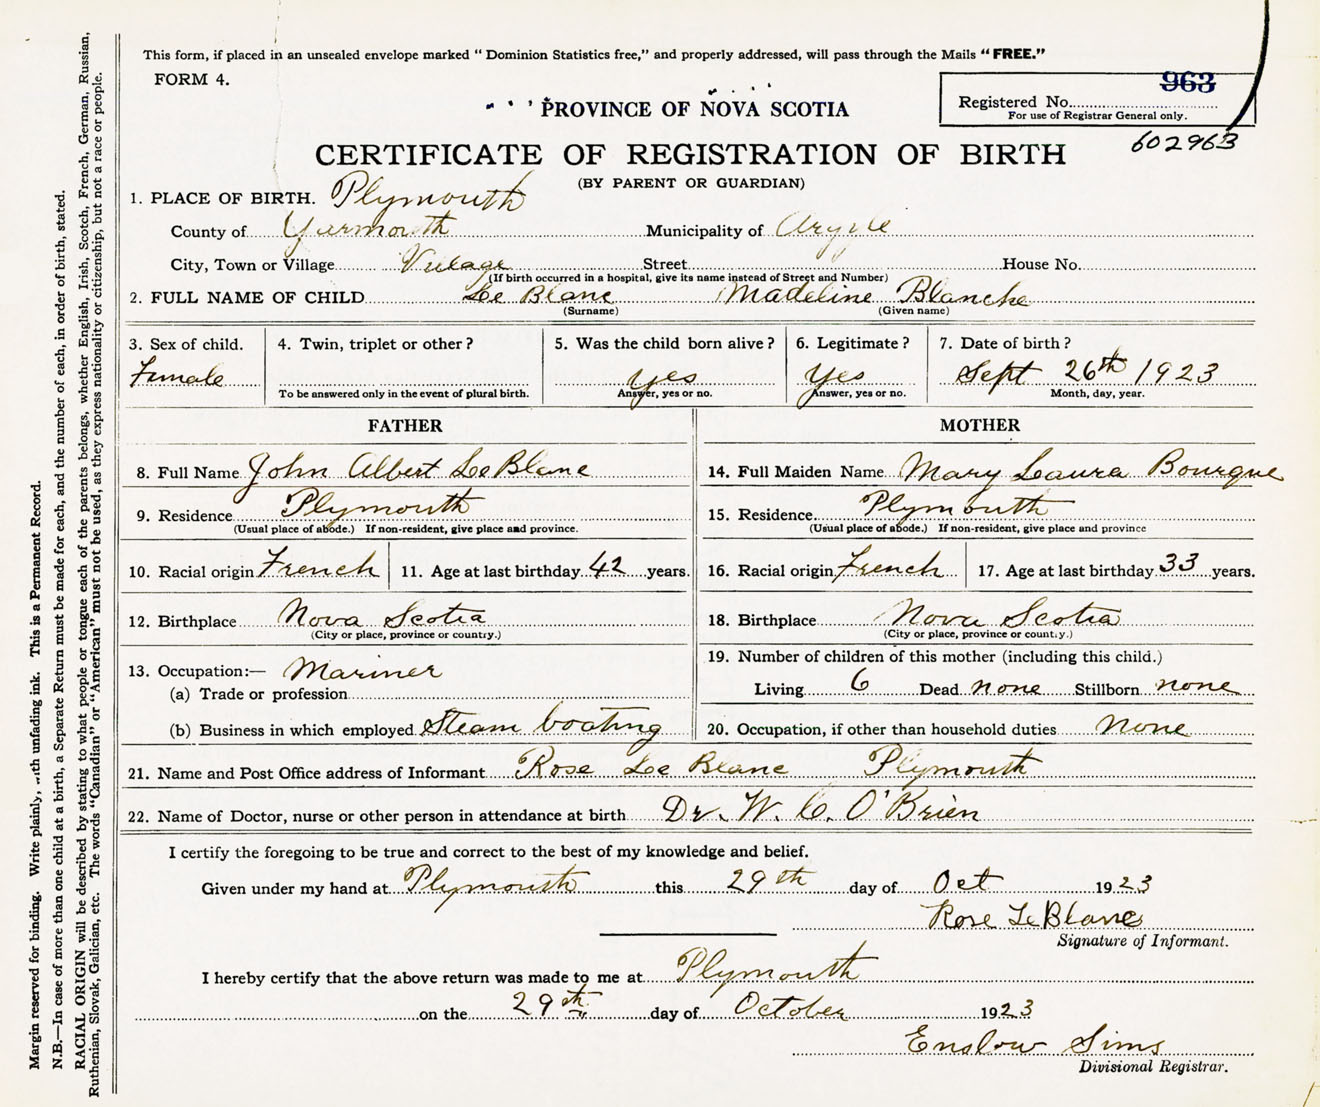 This form, if placed in an unsealed envelope marked "Dominion Statistics free," and properly addressed, will pass through the Mails "FREE."
FORM 4.
963
PROVINCE OF NOVA SCOTIA
Registered No.
For use of Registrar General only.
602963
CERTIFICATE OF REGISTRATION OF BIRTH
(BY PARENT OR GUARDIAN)
1. PLACE OF BIRTH. Plymouth
County of Yarmouth Municipality of Argyle
City, Town or Village Village Street House No.
(If birth occurred in a hospital, give its name instead of Street and Number)
2. FULL NAME OF CHILD Le Blanc Madeline Blanche
(Surname) (Given name)
3. Sex of child. 4. Twin, triplet or other? 5. Was the child born alive? 6. Legitimate? 7. Date of birth?
Female yes Yes Sept 26th 1923
To be answered only in the event of plural birth. Answer, yes or no. Answer, yes or no. Month, day, year.
FATHER MOTHER
8. Full Name John Albert Le Blanc 14. Full Maiden Name Mary Laura Bourque
9. Residence Plymouth 15. Residence Plymouth
(Usual place of abode.) If non-resident, give place and province. (Usual place of abode.) If non-resident, give place and province
10. Racial origin French 11. Age at last birthday 42 years. 16. Racial origin French 17. Age at last birthday 33 years.
12. Birthplace Nova Scotia 18. Birthplace Nova Scotia
(City or place, province or country.) (City or place, province or country.)
13. Occupation:— Mariner 19. Number of children of this mother (including this child.)
(a) Trade or profession Living 6 Dead none Stillborn none
(b) Business in which employed Steam boating 20. Occupation, if other than household duties None
21. Name and Post Office address of Informant Rose Le Blanc Plymouth
22. Name of Doctor, nurse or other person in attendance at birth Dr. W. C. O'Brien
I certify the foregoing to be true and correct to the best of my knowledge and belief.
Given under my hand at Plymouth this 29th day of Oct 1923
Rose Le Blanc
Signature of Informant.
I hereby certify that the above return was made to me at Plymouth
on the 29th day of October 1923
Enslow Sims
Divisional Registrar.
Margin reserved for binding. Write plainly, ..th unfading ink. This is a Permanent Record.
N.B.—In case of more than one child at a birth, a Separate Return must be made for each, and the number of each, in order of birth, stated.
RACIAL ORIGIN will be described by stating to what people or tongue each of the parents belongs, whether English, Irish, Scotch, French, German, Russian,
Ruthenian, Slovak, Galician, etc. The words "Canadian" or "American" must not be used, as they express nationality or citizenship, but not a race or people.